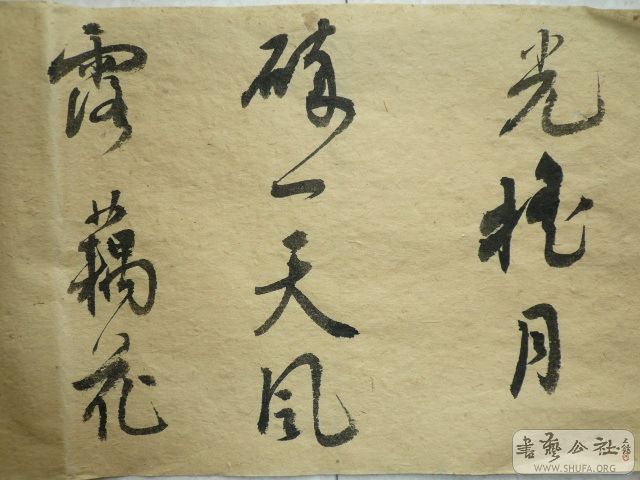 光摇月
碎一天风
露藕花
書藝公社
WWW.SHUFA.ORG